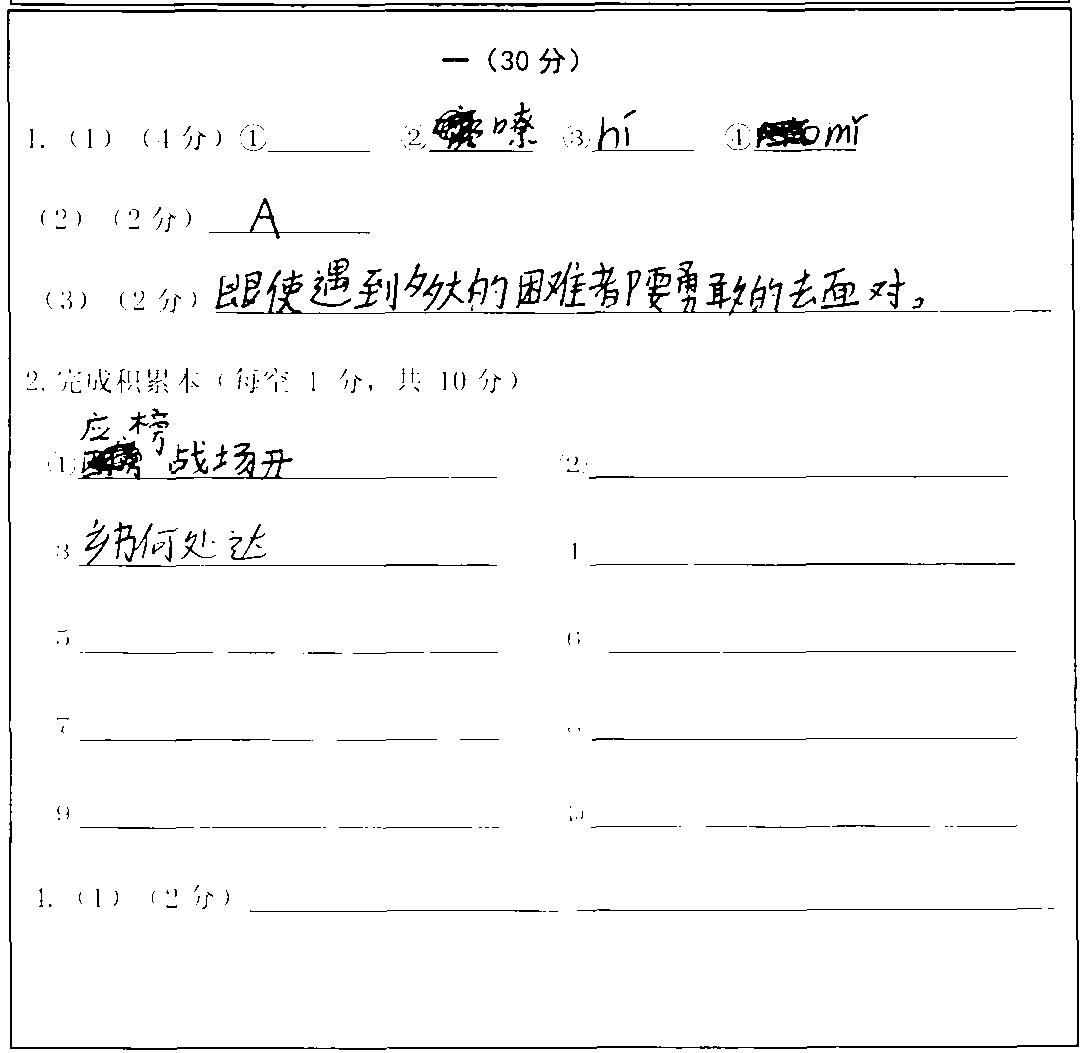 一（30 分）
1.（1）（4 分）①______ ②嘹 ③hí ④mǐ
（2）（2 分）A
（3）（2 分）即使遇到多大的困难都要勇敢的去面对。
2. 完成积累本（每空 1 分，共 10 分）
应榜
（1）战场开 （2）
3 乡书何处达 4
5 6
7 8
9 10
4.（1）（2 分）